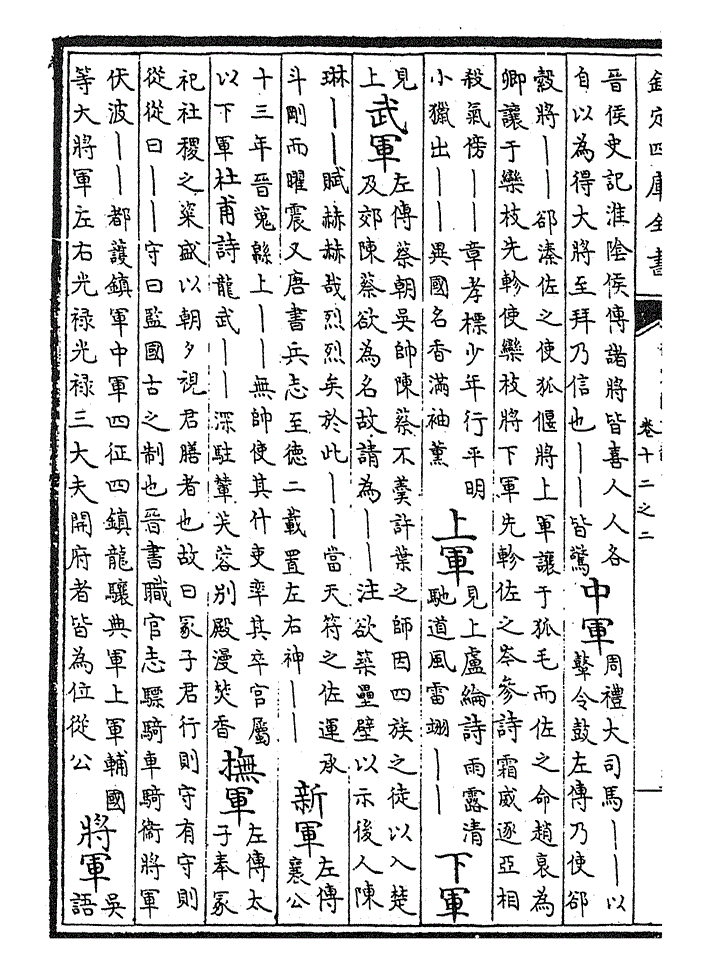 欽定四庫全書
卷十二之二
晉侯史記淮陰侯傳諸將皆喜人人各
自以為得大將至拜乃信也——皆驚
中軍
周禮大司馬——以
鼙令鼓左傳乃使郤
縠將——郤溱佐之使狐偃將上軍讓于狐毛而佐之命趙衰為
卿讓于欒枝先軫使欒枝將下軍先軫佐之岑參詩霜威逐亞相
殺氣傍——章孝標少年行平明
小獵出——異國名香滿袖薰
上軍
見上盧綸詩雨露清
馳道風雷翊——
下軍
見
上
武軍
左傳蔡朝吳帥陳蔡不羹許葉之師因四族之徒以入楚
及郊陳蔡欲為名故請為——注欲築壘壁以示後人陳
琳——賦赫赫哉烈烈矣於此——當天符之佐運承
斗剛而曜震又唐書兵志至德二載置左右神——
新軍
左傳
襄公
十三年晉蒐緜上——無帥使其什吏率其卒官屬
以下軍杜甫詩龍武——深駐輦芙蓉別殿漫焚香
撫軍
左傳太
子奉冢
祀社稷之粢盛以朝夕視君膳者也故曰冢子君行則守有守則
從從曰——守曰監國古之制也晉書職官志驃騎車騎衛將軍
伏波——都護鎮軍中軍四征四鎮龍驤典軍上軍輔國
等大將軍左右光祿光祿三大夫開府者皆為位從公
將軍
吳
語